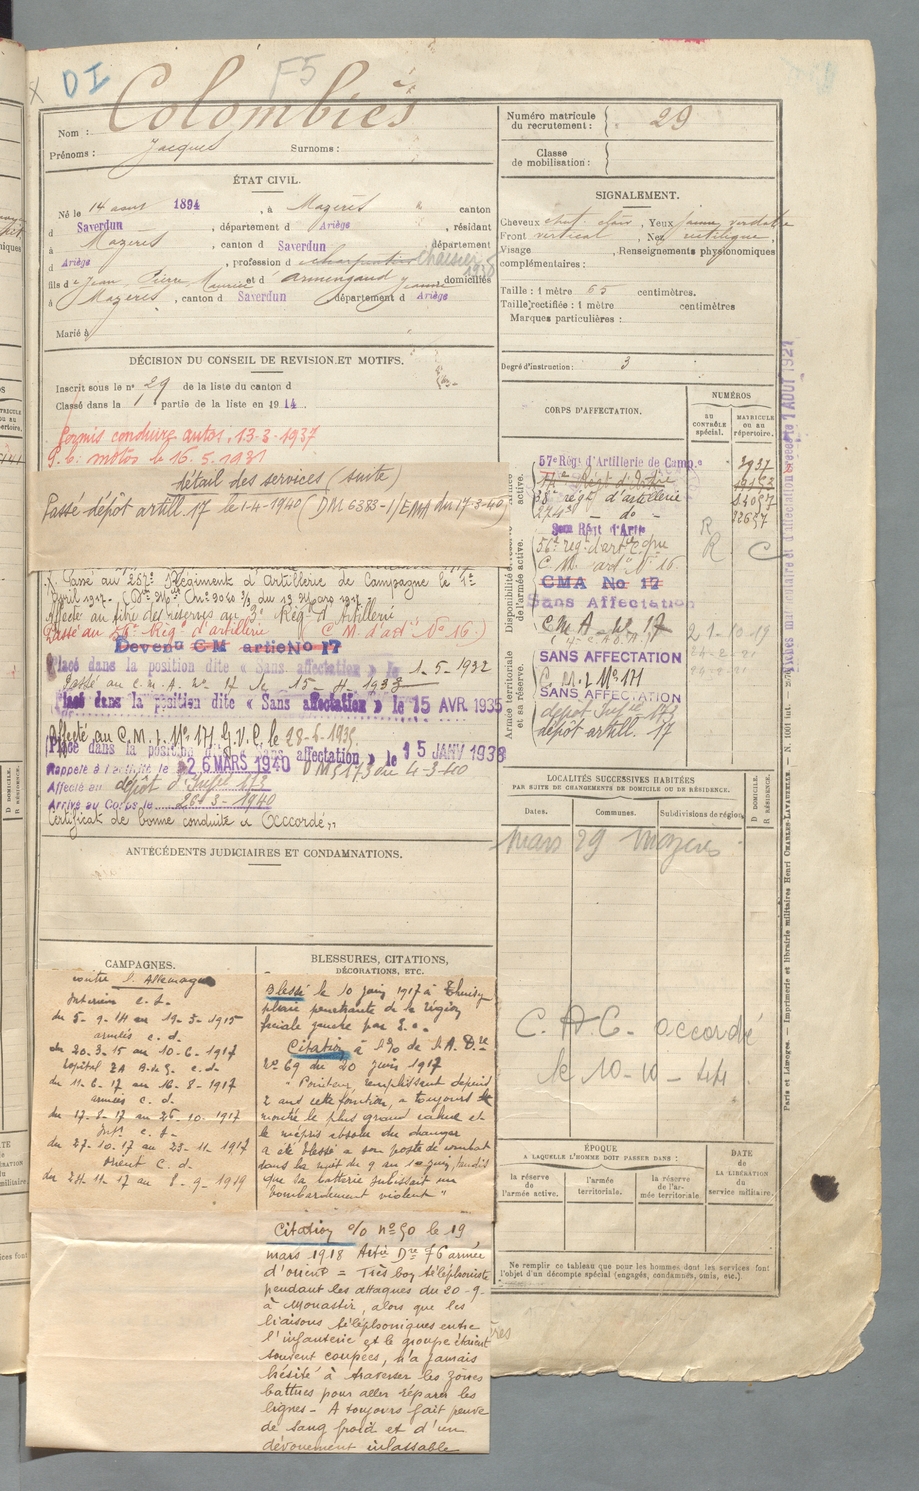 DI
F5
Nom : Colombiès
Prénoms : Jacques Surnoms :
Numéro matricule du recrutement : 29
Classe de mobilisation :
ÉTAT CIVIL.
Né le 14 aout 1894, à Mazères canton
d Saverdun, département d Ariège, résidant
à Mazères, canton d Saverdun département
d Ariège, profession d charpentier chaisier
fils de Jean Pierre Maurice et d'Armengaud Jeanne domiciliés
à Mazères, canton d Saverdun département d Ariège
Marié à
SIGNALEMENT.
Cheveux chat. clair, Yeux jaune verdatre
Front vertical, Nez rectiligne,
Visage , Renseignements physionomiques
complémentaires :
Taille : 1 mètre 65 centimètres.
Taille rectifiée : 1 mètre centimètres
Marques particulières :
Degré d'instruction : 3
DÉCISION DU CONSEIL DE REVISION ET MOTIFS.
Inscrit sous le n° 29 de la liste du canton d
Classé dans la 1 partie de la liste en 1914
Permis conduire autos. 13-3-1937
P. c. motos le 16.5.1931
détail des services (suite)
Passé dépôt artill. 17 le 1-4-1940 (DM 6383-1/EMA du 17-3-40)
Passé au 267e Régiment d'Artillerie de Campagne le 1er
Avril 1917
Affecté au titre des réserves au 3e Rég. d'Artillerie
Passé au 56e Rég. d'artillerie (C M. d'art. N° 16.)
Devenu CM artie No 17
Placé dans la position dite « Sans affectation » le 1-5-1932
Passé au C. M. A. N° 17 le 15-4-1933
Placé dans la position dite « Sans affectation » le 15 AVR. 1935
Affecté au C. M. I. N° 171 G.V.C. le 28-6-1935
Placé dans la position dite « Sans affectation » le 15 JANV 1938
Rappelé à l'activité le 26 MARS 1940 DM 5173 du 4-3-40
Affecté au dépôt d'Infie 173
Arrivé au Corps le 26-3-1940
Certificat de bonne conduite "Accordé"
CORPS D'AFFECTATION.
NUMÉROS
AU CONTRÔLE SPÉCIAL.
MATRICULE OU AU RÉPERTOIRE.
Armée active.
Disponibilité et réserve de l'armée active.
Armée territoriale et sa réserve.
57e Régt d'Artillerie de Camp.e
38e rég. d'artillerie
274e - do -
3me Régt d'Artie
C. M. artie N° 16
CMA No 17
Sans Affectation
C M A - N° 17
SANS AFFECTATION
C. M. I. N° 171
SANS AFFECTATION
dépôt Infie 173
dépôt artill. 17
R
R
C
21-10-19
ANTÉCÉDENTS JUDICIAIRES ET CONDAMNATIONS.
LOCALITÉS SUCCESSIVES HABITÉES
PAR SUITE DE CHANGEMENTS DE DOMICILE OU DE RÉSIDENCE.
Dates. Communes. Subdivisions de région.
D DOMICILE.
R RÉSIDENCE.
mars 29 Mazères
C.A.C. accordé
le 10-10-44
CAMPAGNES.
contre l'Allemagne
Intérieur C. S.
du 5-9-14 au 19-3-1915
armées c. d.
du 20-3-15 au 10-6-1917
hôpital ZA B. de G. c. d.
du 11-6-17 au 16-8-1917
armées c. d.
du 17-8-17 au 26-10-1917
Int. C. S.
du 27-10-17 au 23-11-1917
Orient C. d.
du 24-11-17 au 8-9-1919
BLESSURES, CITATIONS,
DÉCORATIONS, ETC.
Blessé le 10 juin 1917 à Thuisy
plaie pénétrante de la région
faciale gauche par E. o.
Citation à l'o/o de l'A. D.re
n° 69 du 20 juin 1917
"Pointeur, remplissant depuis
2 ans cette fonction, a toujours
montré la plus grand calme et
le mépris absolu du danger
a été blessé a son poste de combat
dans la nuit du 9 au 10 juin, tandis
que la batterie subissait un
bombardement violent"
Citation o/o n° 50 le 19
mars 1918 Artie Dre 76 armée
d'orient = Très bon téléphoniste
pendant les attaques du 20-9-
à Monastir, alors que les
liaisons téléphoniques entre
l'infanterie et le groupe étaient
souvent coupées, n'a jamais
hésité à traverser les zones
battues pour aller réparer les
lignes - A toujours fait preuve
de sang froid et d'un
dévouement inlassable
ÉPOQUE
A LAQUELLE L'HOMME DOIT PASSER DANS :
la réserve de l'armée active.
l'armée territoriale.
la réserve de l'armée territoriale.
DATE de LA LIBÉRATION du service militaire.
Ne remplir ce tableau que pour les hommes dont les services font
l'objet d'un décompte spécial (engagés, condamnés, omis, etc.).
Paris et Limoges. — Imprimerie et librairie militaires Henri CHARLES-LAVAUZELLE.